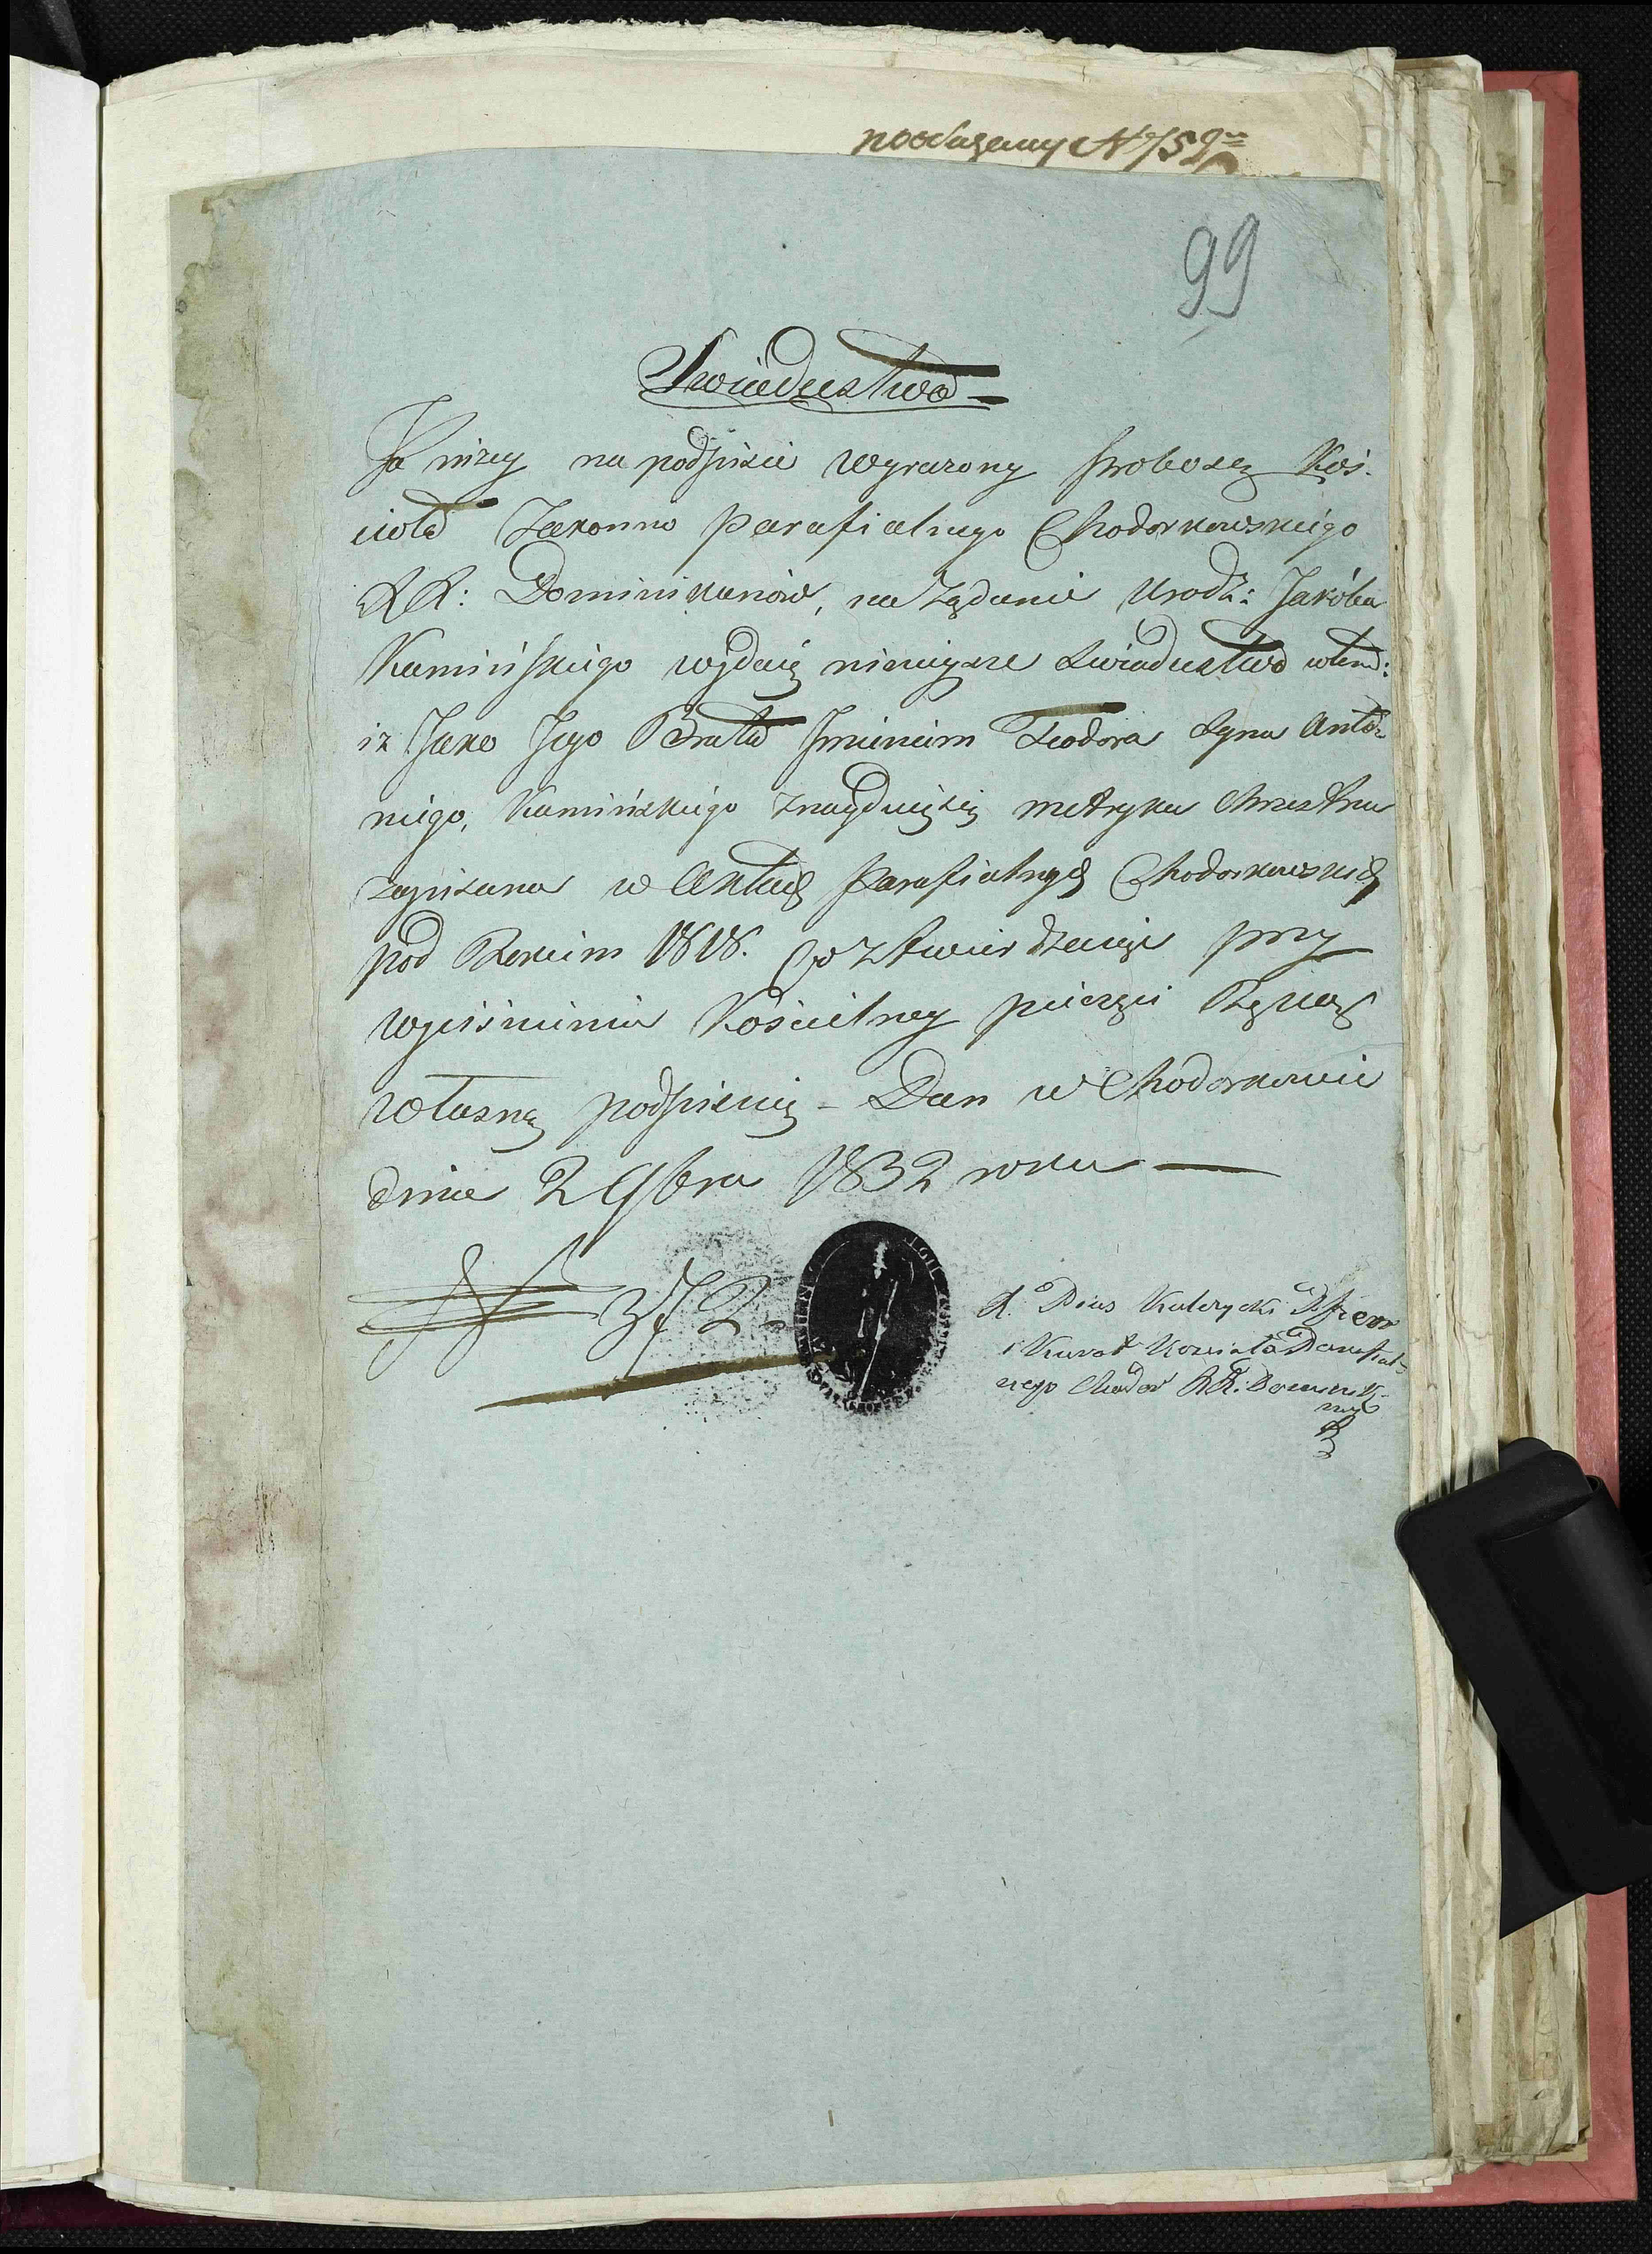 99
Swiadectwo
Ja nizey na podpisie wyrazony Proboszcz Koś-
cioła Zakonno Parafialnego Chodorkowskiego
XX: Dominikanów, na żądanie Urodz: Jakóba
Kamińskiego wydaię ninieysze Swiadectwo w tem:
iz Jako Jego Brata Imieniem Teodora Syna Anto-
niego, Kamińskiego znayduię się metryka chrzestna
zapisana w Aktach Parafialnych Chodorkowskich
pod Rokiem 1818. Co ztwierdzaiąc przy
wyciśnieniu Kościelney pieczęci Ręką
własną podpisuię - Dan w Chodorkowie
dnia 2 9bra 1832 roku
372
X. Pius Kulczycki Przeor
i Kurat Kościoła Parafial-
nego Chodor RR: Dominik-